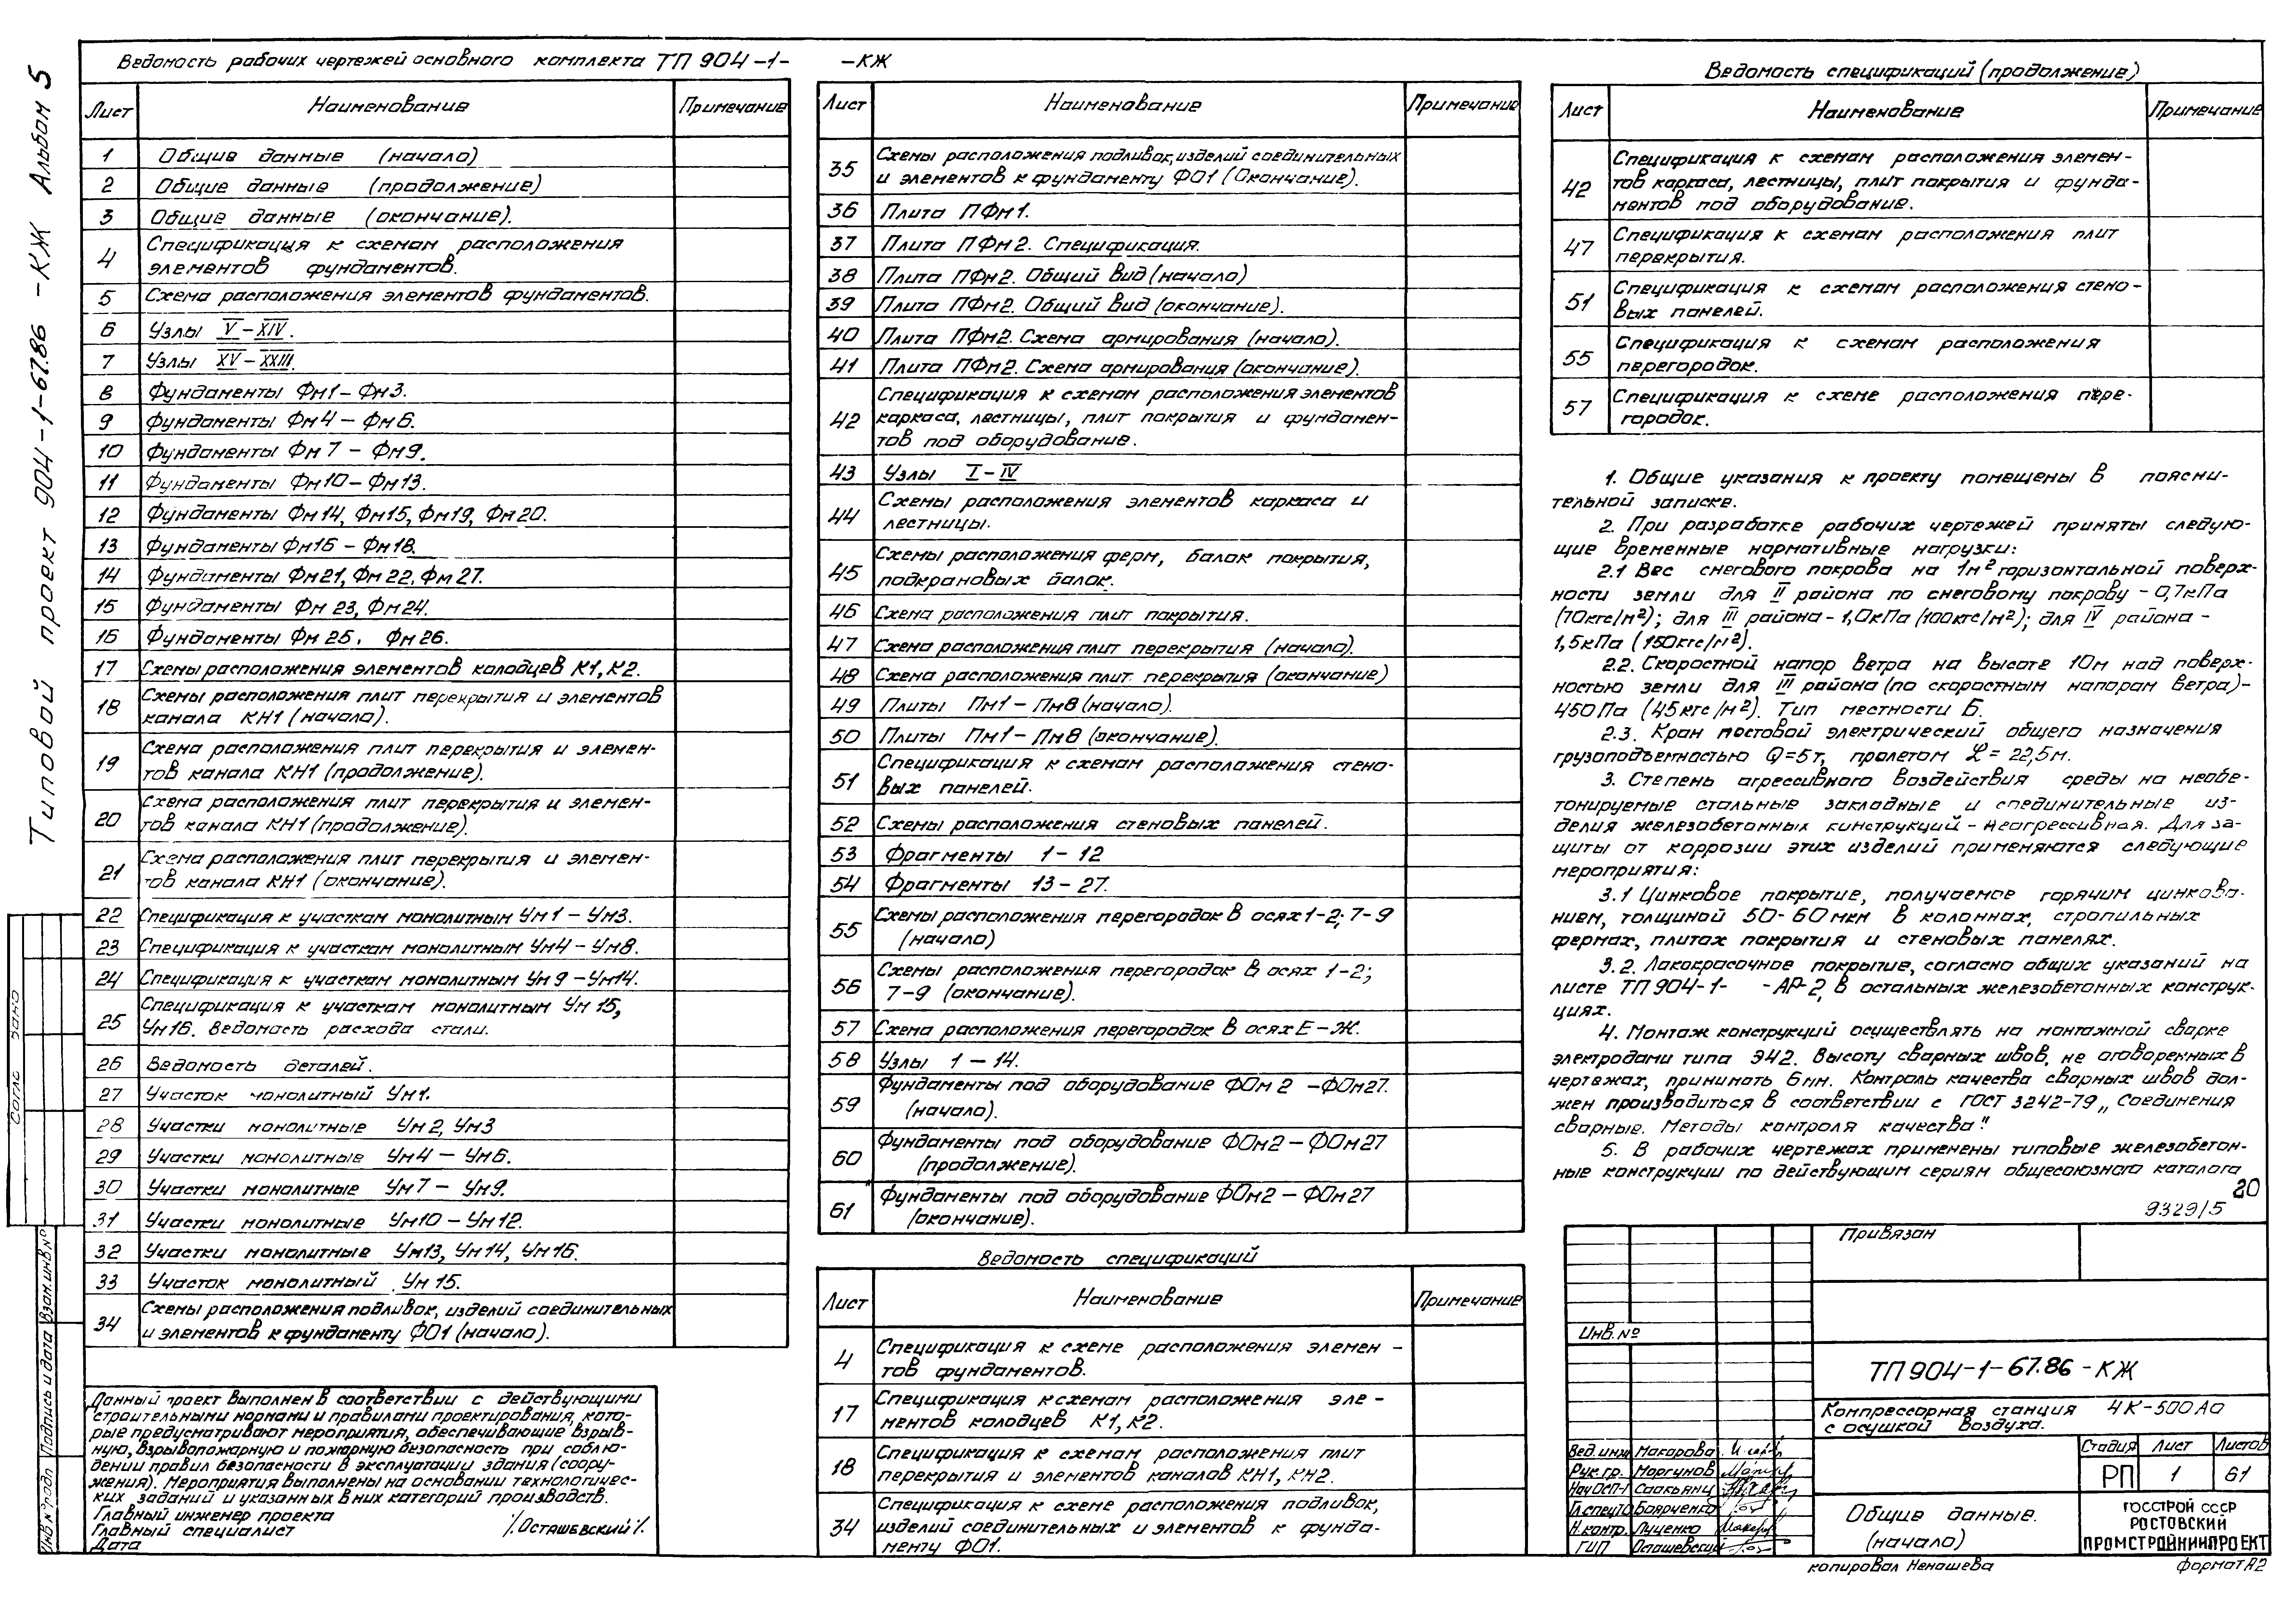 Типовой проект 904-1-67.86 -КЖ Альбом 5
Ведомость рабочих чертежей основного комплекта ТП 904-1- -КЖ
Лист Наименование Примечание
1 Общие данные (начало)
2 Общие данные (продолжение)
3 Общие данные (окончание).
4 Спецификация к схемам расположения
элементов фундаментов.
5 Схема расположения элементов фундаментов.
6 Узлы V-XIV.
7 Узлы XV-XXIII.
8 Фундаменты Фм1-Фм3.
9 Фундаменты Фм4-Фм6.
10 Фундаменты Фм7-Фм9.
11 Фундаменты Фм10-Фм13.
12 Фундаменты Фм14, Фм15, Фм19, Фм20.
13 Фундаменты Фм16-Фм18.
14 Фундаменты Фм21, Фм22, Фм27.
15 Фундаменты Фм23, Фм24.
16 Фундаменты Фм25, Фм26.
17 Схемы расположения элементов колодцев К1, К2.
18 Схемы расположения плит перекрытия и элементов
канала КН1 (начало).
19 Схема расположения плит перекрытия и элемен-
тов канала КН1 (продолжение).
20 Схема расположения плит перекрытия и элемен-
тов канала КН1 (продолжение).
21 Схема расположения плит перекрытия и элемен-
тов канала КН1 (окончание).
22 Спецификация к участкам монолитным Ум1-Ум3.
23 Спецификация к участкам монолитным Ум4-Ум8.
24 Спецификация к участкам монолитным Ум9-Ум14.
25 Спецификация к участкам монолитным Ум15,
Ум16. Ведомость расхода стали.
26 Ведомость деталей.
27 Участок монолитный Ум1.
28 Участки монолитные Ум2, Ум3
29 Участки монолитные Ум4-Ум6.
30 Участки монолитные Ум7-Ум9.
31 Участки монолитные Ум10-Ум12.
32 Участки монолитные Ум13, Ум14, Ум16.
33 Участок монолитный Ум15.
34 Схемы расположения подливок, изделий соединительных
и элементов к фундаменту ФО1 (начало).
Данный проект выполнен в соответствии с действующими
строительными нормами и правилами проектирования, кото-
рые предусматривают мероприятия, обеспечивающие взрыв-
ную, взрывопожарную и пожарную безопасность при соблю-
дении правил безопасности в эксплуатации здания (соору-
жения). Мероприятия выполнены на основании технологичес-
ких заданий и указанных в них категорий производств.
Главный инженер проекта
Главный специалист /Осташевский/.
Дата
Инв.№ подл Подпись и дата Взам.инв.№
Лист Наименование Примечание
35 Схемы расположения подливок, изделий соединительных
и элементов к фундаменту ФО1 (Окончание).
36 Плита ПФм1.
37 Плита ПФм2. Спецификация.
38 Плита ПФм2. Общий вид (начало)
39 Плита ПФм2. Общий вид (окончание).
40 Плита ПФм2. Схема армирования (начало).
41 Плита ПФм2. Схема армирования (окончание).
42 Спецификация к схемам расположения элементов
каркаса, лестницы, плит покрытия и фундамен-
тов под оборудование.
43 Узлы I-IV
44 Схемы расположения элементов каркаса и
лестницы.
45 Схемы расположения ферм, балок покрытия,
подкрановых балок.
46 Схема расположения плит покрытия.
47 Схема расположения плит перекрытия (начало).
48 Схема расположения плит перекрытия (окончание)
49 Плиты Пм1-Пм8 (начало).
50 Плиты Пм1-Пм8 (окончание).
51 Спецификация к схемам расположения стено-
вых панелей.
52 Схемы расположения стеновых панелей.
53 Фрагменты 1-12
54 Фрагменты 13-27.
55 Схемы расположения перегородок в осях 1-2; 7-9
(начало)
56 Схемы расположения перегородок в осях 1-2;
7-9 (окончание).
57 Схема расположения перегородок в осях Е-Ж.
58 Узлы 1-14.
59 Фундаменты под оборудование ФОм2-ФОм27.
(начало).
60 Фундаменты под оборудование ФОм2-ФОм27
(продолжение).
61 Фундаменты под оборудование ФОм2-ФОм27
(окончание).
Ведомость спецификаций
Лист Наименование Примечание
4 Спецификация к схеме расположения элемен-
тов фундаментов.
17 Спецификация к схемам расположения эле-
ментов колодцев К1, К2.
18 Спецификация к схемам расположения плит
перекрытия и элементов каналов КН1, КН2.
34 Спецификация к схеме расположения подливок,
изделий соединительных и элементов к фунда-
менту ФО1.
Ведомость спецификаций (продолжение)
Лист Наименование Примечание
42 Спецификация к схемам расположения элемен-
тов каркаса, лестницы, плит покрытия и фунда-
ментов под оборудование.
47 Спецификация к схемам расположения плит
перекрытия.
51 Спецификация к схемам расположения стено-
вых панелей.
55 Спецификация к схемам расположения
перегородок.
57 Спецификация к схеме расположения пере-
городок.
1. Общие указания к проекту помещены в поясни-
тельной записке.
2. При разработке рабочих чертежей приняты следую-
щие временные нормативные нагрузки:
2.1 Вес снегового покрова на 1м² горизонтальной поверх-
ности земли для II района по снеговому покрову - 0,7кПа
(70кгс/м²); для III района - 1,0кПа (100кгс/м²); для IV района -
1,5кПа (150кгс/м²).
2.2. Скоростной напор ветра на высоте 10м над поверх-
ностью земли для III района (по скоростным напорам ветра)-
450Па (45кгс/м²). Тип местности Б.
2.3. Кран мостовой электрический общего назначения
грузоподъемностью Q=5т, пролетом L=22,5м.
3. Степень агрессивного воздействия среды на необе-
тонируемые стальные закладные и соединительные из-
делия железобетонных конструкций - неагрессивная. Для за-
щиты от коррозии этих изделий применяются следующие
мероприятия:
3.1 Цинковое покрытие, получаемое горячим цинкова-
нием, толщиной 50-60мкм в колоннах, стропильных
фермах, плитах покрытия и стеновых панелях.
3.2. Лакокрасочное покрытие, согласно общих указаний на
листе ТП 904-1- -АР-2, в остальных железобетонных конструк-
циях.
4. Монтаж конструкций осуществлять на монтажной сварке
электродами типа Э42. Высоту сварных швов, не оговоренных в
чертежах, принимать 6мм. Контроль качества сварных швов дол-
жен производиться в соответствии с ГОСТ 3242-79 „Соединения
сварные. Методы контроля качества".
5. В рабочих чертежах применены типовые железобетон-
ные конструкции по действующим сериям общесоюзного каталога
20
9329/5
Привязан
Инв.№
ТП 904-1-67.86-КЖ
Компрессорная станция 4К-500Ао
с осушкой воздуха.
Вед.инж Макарова
Рук.гр. Моргунов
Нач ОСП-1 Саакьянц
Гл.спец ТО Боярченко
Н.контр. Луценко
ГИП Осташевский
Стадия Лист Листов
РП 1 61
Общие данные.
(начало)
ГОССТРОЙ СССР
РОСТОВСКИЙ
ПРОМСТРОЙНИИПРОЕКТ
копировал Ненашева формат А2